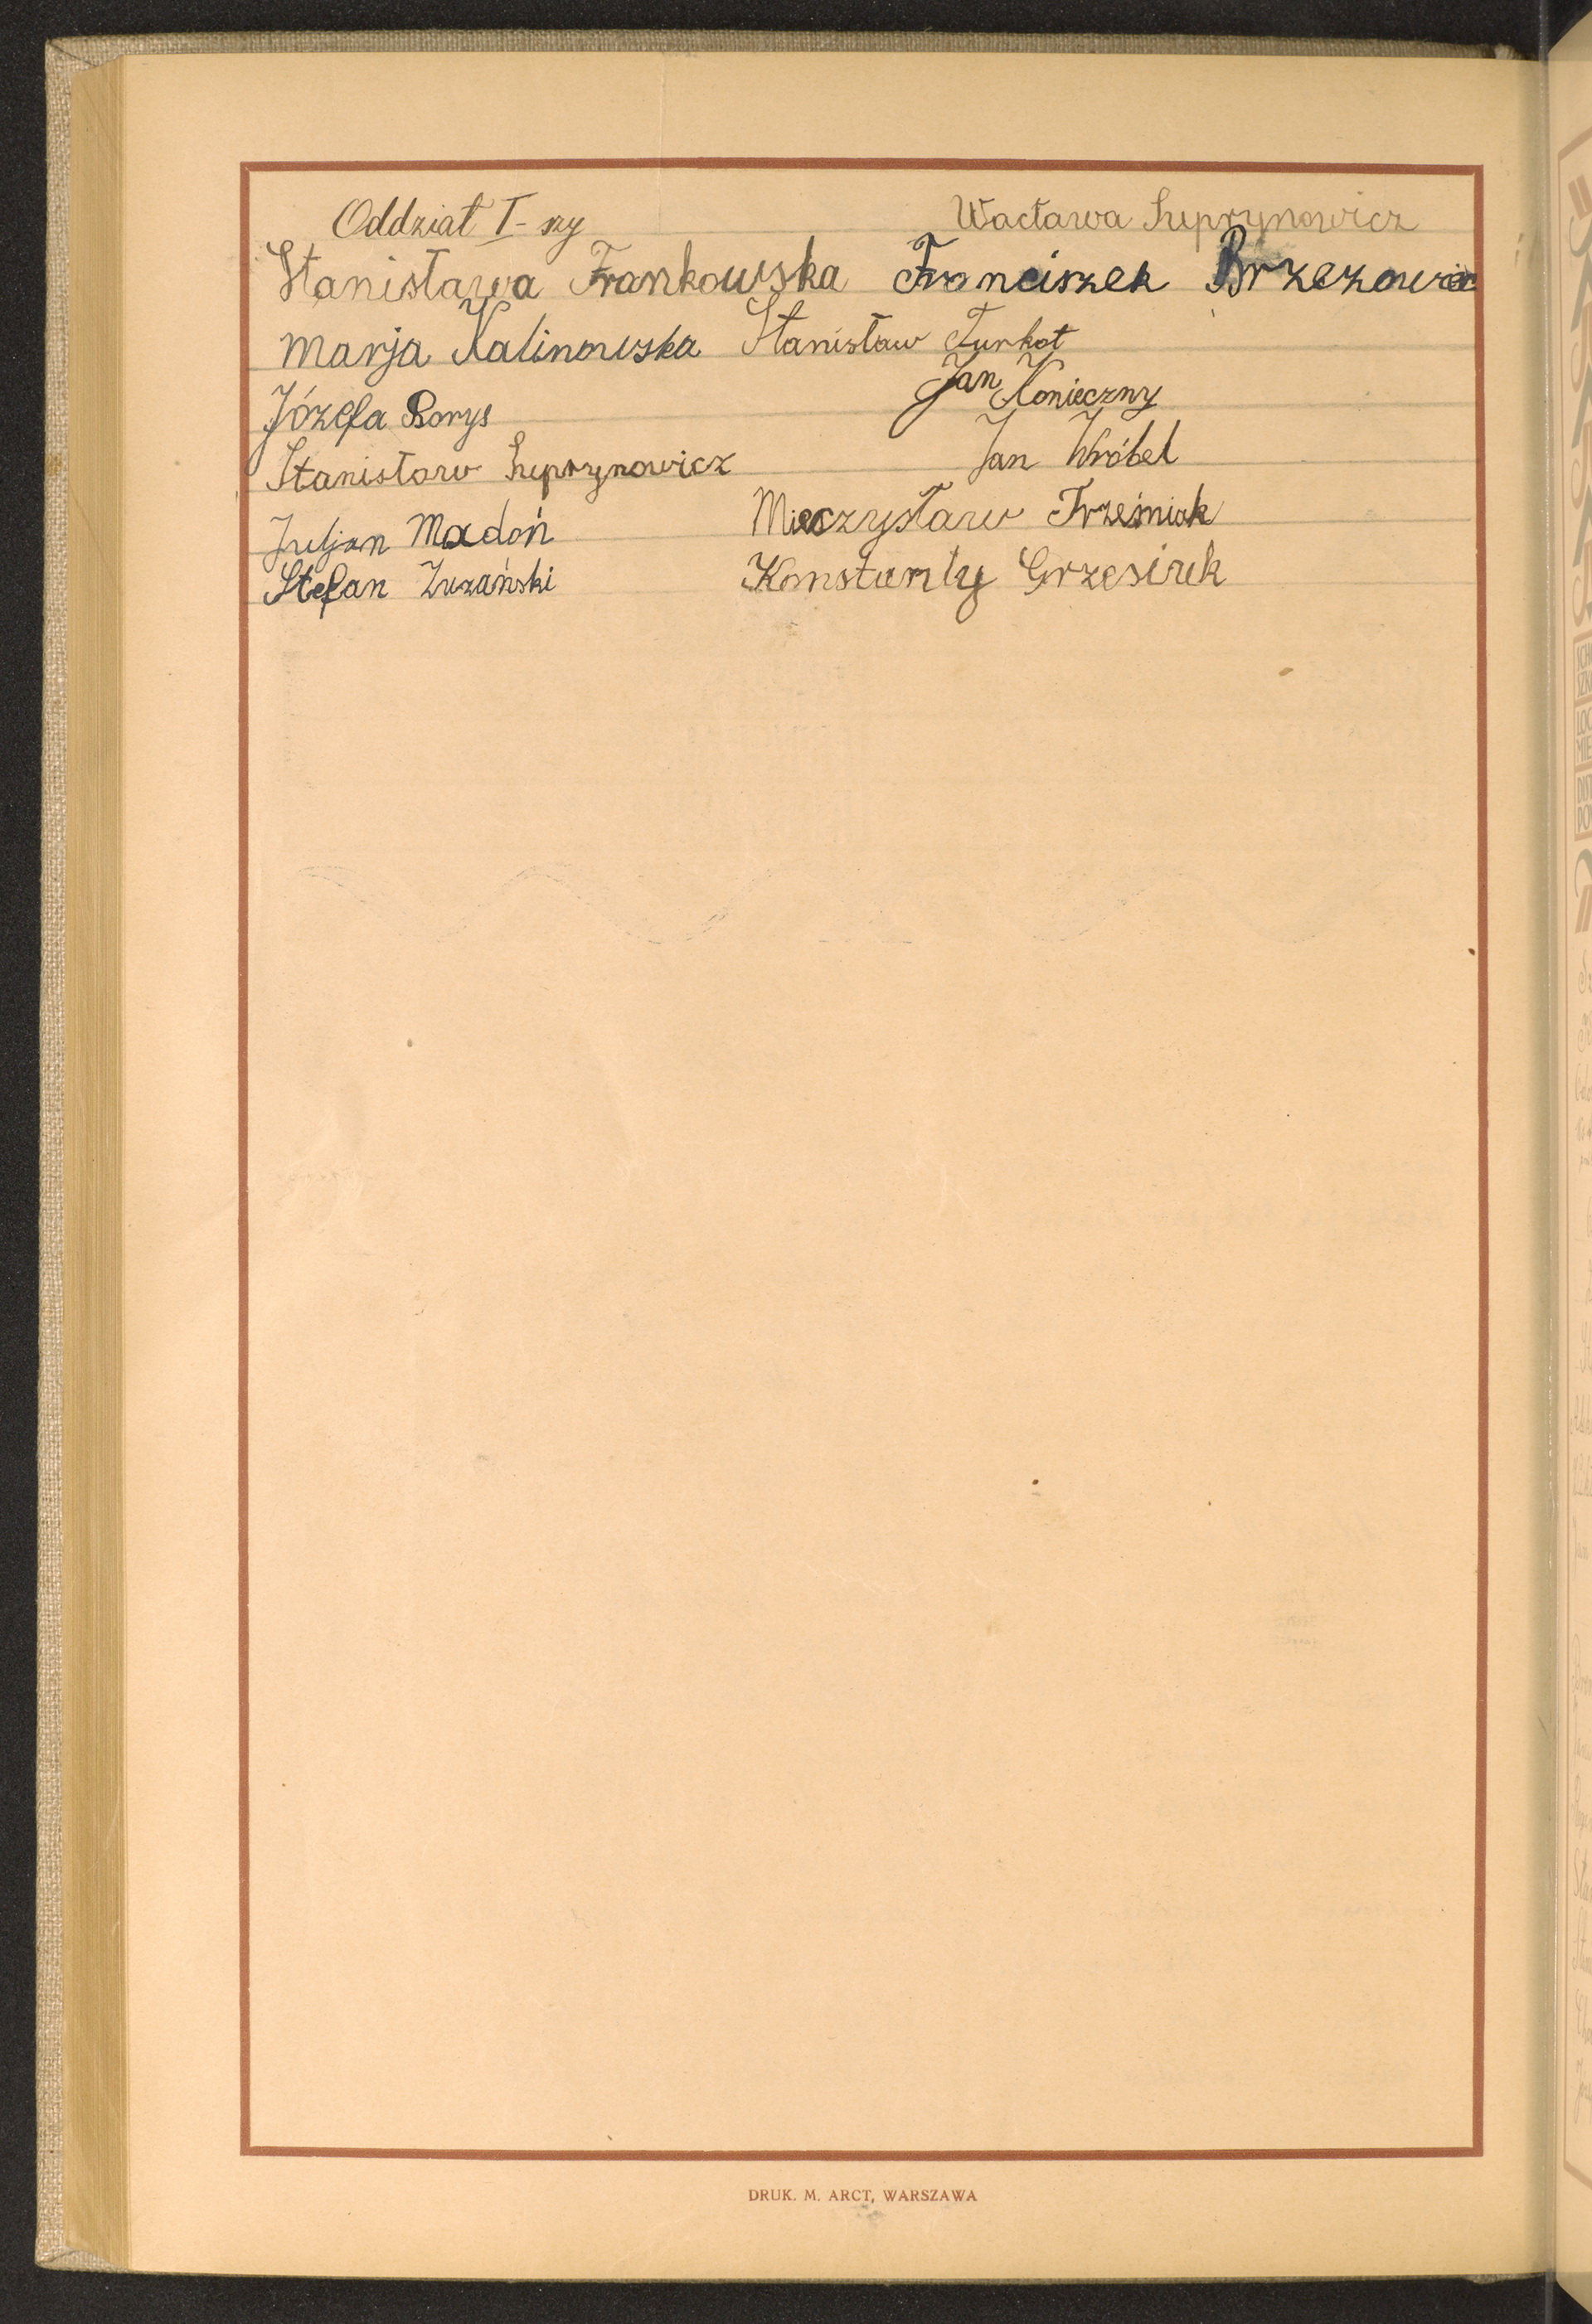 Oddział I-szy Wacława Suprynowicz
Stanisława Frankowska Franciszek Brzezowiec
Marja Kalinowska Stanisław Turkot
Józefa Borys Jan Konieczny
Stanisław Suprynowicz Jan Wróbel
Juljan Madoń Mieczysław Trześniak
Stefan Zuzański Konstanty Grzesiuk
DRUK. M. ARCT, WARSZAWA